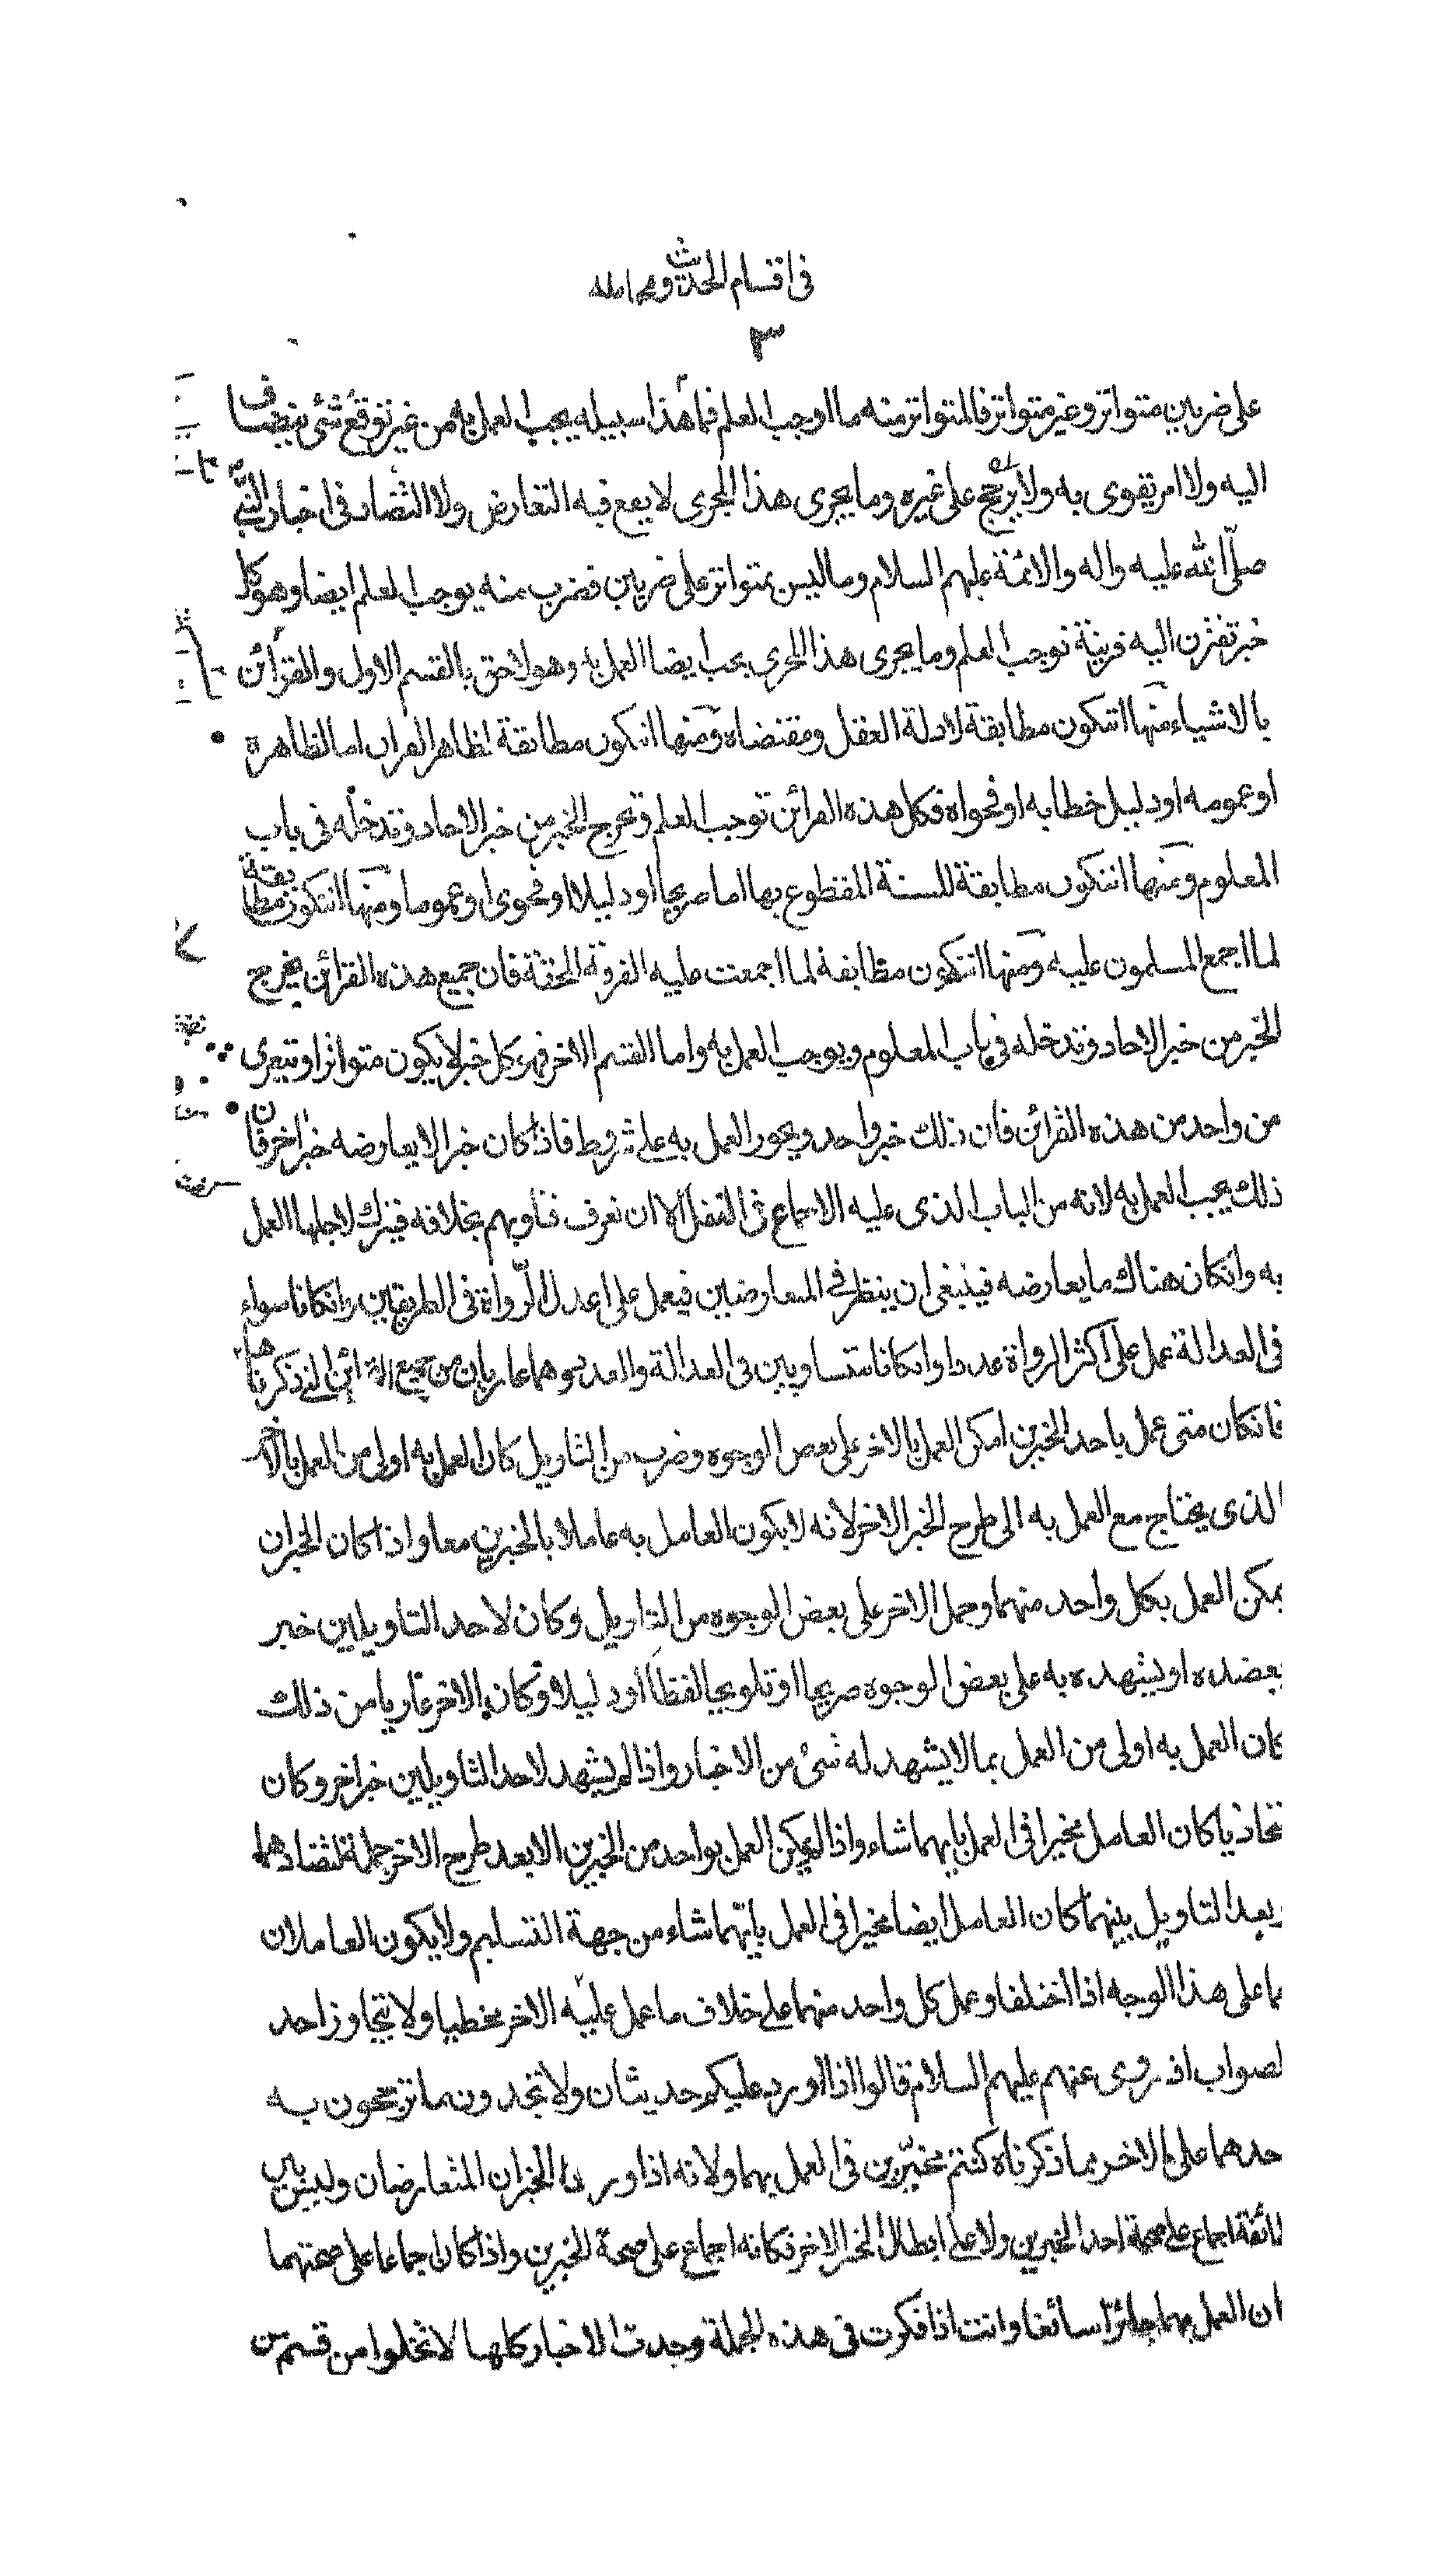 فى اقسام الحديث ومحامله
٣
على ضربين متواتر وغير متواتر فالمتواتر منه ما اوجب العلم فما هذا سبيله يجب العمل به من غير توقع شئ ينضاف
اليه ولا امر يقوى به ولا يرجح على غيره وما يجرى هذا المجرى لا يقع فيه التعارض ولا التضاد فى اخبار النبى
صلّى الله عليه واله والائمة عليهم السلام وما ليس بمتواتر على ضربين فضرب منه يوجب العلم ايضا وهو كل
خبر تقترن اليه قرينة توجب العلم وما يجرى هذا المجرى يجب ايضا العمل به وهو لاحق بالقسم الاول والقرائن
بالاشياء منها ان تكون مطابقة لادلة العقل ومقتضاه ومنها ان تكون مطابقة لظاهر القران اما لظاهره
او عمومه او دليل خطابه او فحواه فكل هذه القرائن توجب العلم وتخرج الخبر من خبر الاحاد وتدخله فى باب
المعلوم ومنها ان تكون مطابقة للسنة المقطوع بها اما صريحا او دليلا او فحوى او عموما ومنها ان تكون مطابقة
لما اجمع المسلمون عليه ومنها ان تكون مطابقة لما اجمعت عليه الفرقة المحقة فان جميع هذه القرائن يخرج
الخبر من خبر الاحاد وتدخله فى باب المعلوم ويوجب العمل به واما القسم الاخر فهو كل خبر لا يكون متواترا ويتعرى
من واحد من هذه القرائن فان ذلك خبر واحد ويجوز العمل به على شروط فاذا كان خبرا لا يعارضه خبر اخر فان
ذلك يجب العمل به لانه من الباب الذى عليه الاجماع فى النقل الا ان تعرف فتاويهم بخلافه فيترك لاجلها العمل
به وان كان هناك ما يعارضه فينبغى ان ينظر فى المتعارضين فيعمل على اعدل الرّواة فى الطريقين وان كانا سواء
فى العدالة عمل على اكثر الرواة عددا وان كانا متساويين فى العدالة والعدد وهما عاريان من جميع القرائن التى ذكرناها
فان كان متى عمل باحد الخبرين امكن العمل بالاخر على بعض الوجوه وضرب من التاويل كان العمل به اولى من العمل بالاخر
الذى يحتاج مع العمل به الى طرح الخبر الاخر لانه لا يكون العامل به عاملا بالخبرين معا واذا كان الخبران
يمكن العمل بكل واحد منهما وحمل الاخر على بعض الوجوه من التاويل وكان لاحد التاويلين خبر
يعضده او يشهد به على بعض الوجوه صريحا او تلويحا لفظا او دليلا وكان الاخر عاريا من ذلك
كان العمل به اولى من العمل بما لا يشهد له شئ من الاخبار واذا لم يشهد لاحد التاويلين خبر اخر وكان
متحاذيا كان العامل مخيرا فى العمل بايهما شاء واذا لم يمكن العمل بواحد من الخبرين الا بعد طرح الاخر جملة لتضادهما
وبعد التاويل بينهما كان العامل ايضا مخيرا فى العمل بايّهما شاء من جهة التسليم ولا يكون العاملان
بهما على هذا الوجه اذا اختلفا وعمل كل واحد منهما على خلاف ما عمل عليه الاخر مخطيا ولا تجاوزا حد
الصواب اذ روى عنهم عليهم السلام قالوا اذا اورد عليكم حديثان ولا تجدون ما ترجحون به
احدهما على الاخر مما ذكرناه كنتم مخيّرين فى العمل بهما ولانه اذا ورد الخبران المتعارضان وليس بين
الطائفة اجماع على صحة احد الخبرين ولا على ابطال الخبر الاخر فكانه اجماع على صحة الخبرين واذا كان اجماعا على صحتهما
كان العمل بهما جائزا سائغا وانت اذا فكرت فى هذه الجملة وجدت الاخبار كلها لا تخلوا من قسم من